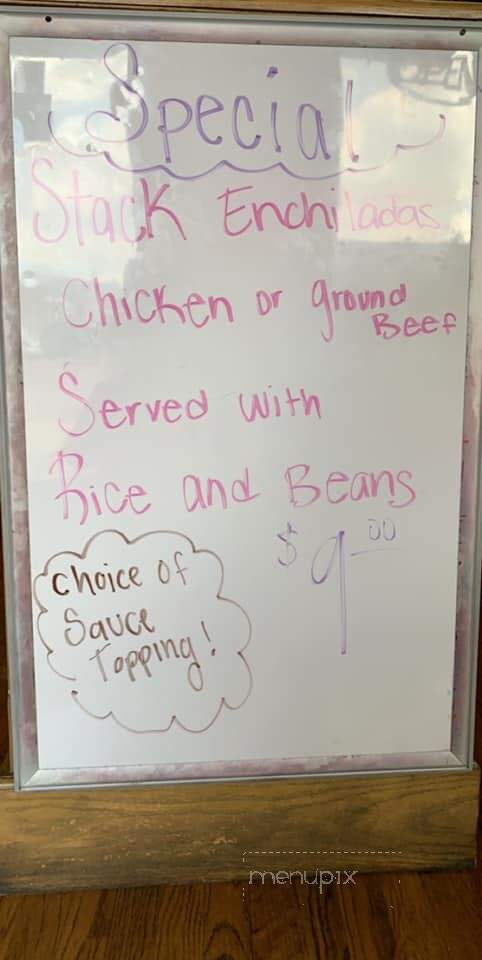 OPEN
Special
Stack Enchiladas
Chicken or ground
Beef
Served with
Rice and Beans
$9.00
Choice of
Sauce
Topping!
menupix